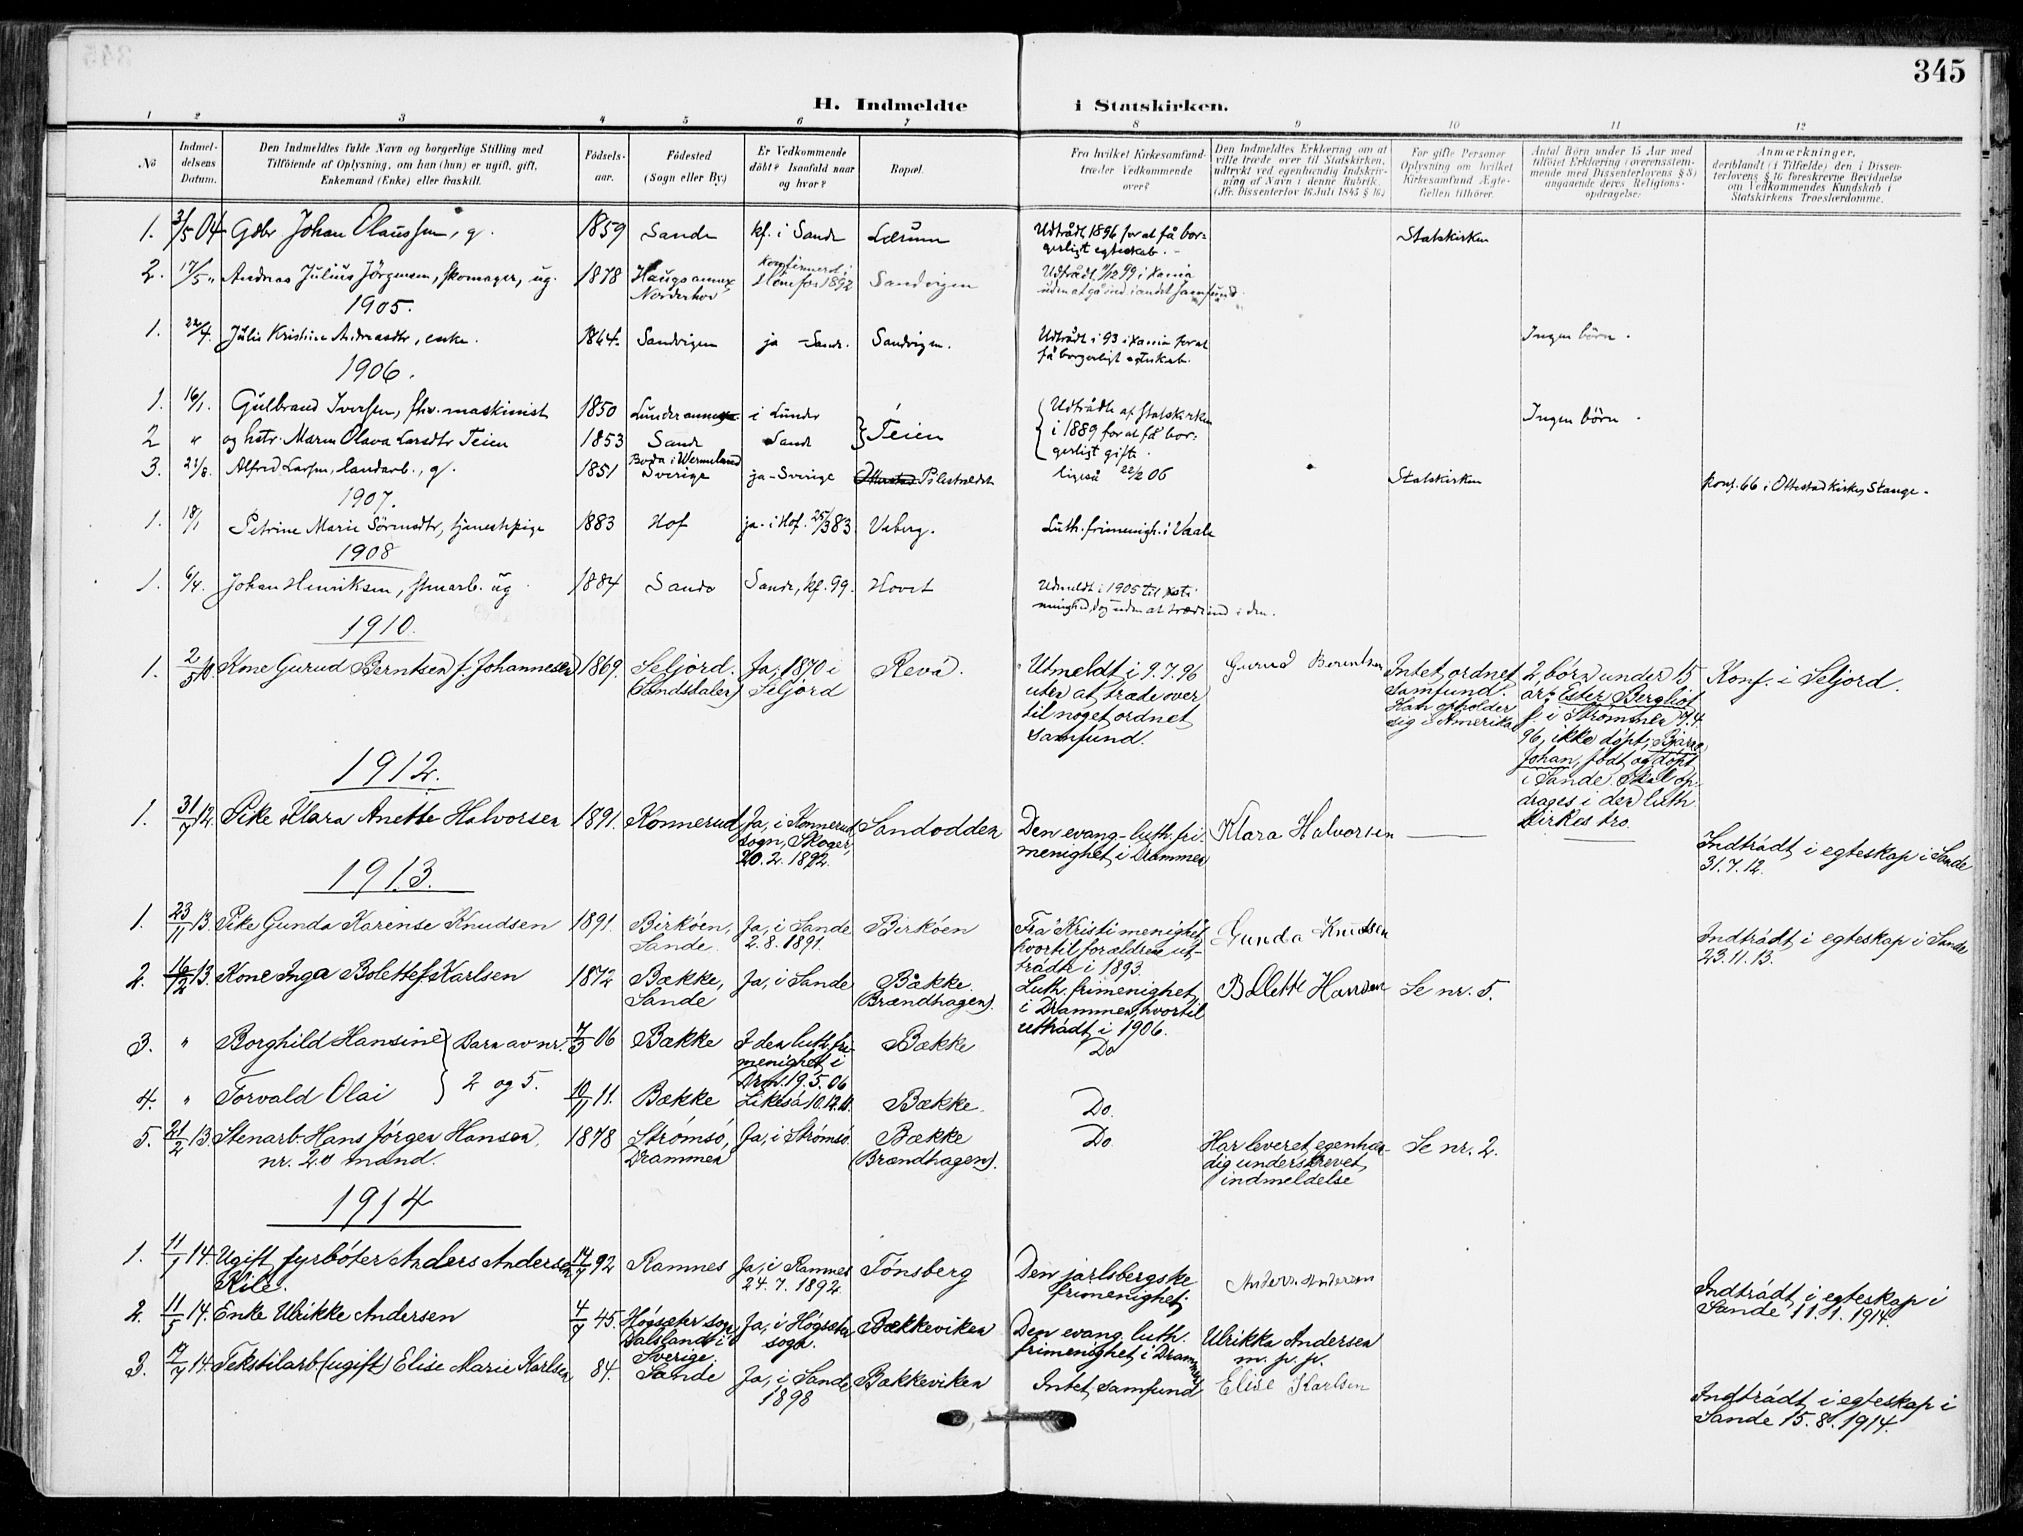 345
H. Indmeldte i Statskirken.
1 2 3 4 5 6 7 8 9 10 11 12
No
Indmeldelsens Datum.
Den Indmeldtes fulde Navn og borgerlige Stilling med
Tilföiende af Oplysning, om han (hun) er ugift, gift,
Enkemand (Enke) eller fraskilt.
Födselsaar.
Födested
(Sogn eller By.)
Er Vedkommende
döbt? Isaafald naar
og hvor?
Bopæl.
Fra hvilket Kirkesamfund
træder Vedkommende
over?
Den Indmeldtes Erklæring om at
ville træde over til Statskirken,
udtrykt ved egenhændig Indskrivning
af Navn i denne Rubrik.
(Jfr. Dissenterlov 16. Juli 1845 § 16.)
For gifte Personer
Oplysning om hvilket
Kirkesamfund Ægtefellen
tilhörer.
Antal Börn under 15 Aar med
tilföiet Erklæring (overensstemmende
med Dissenterlovens § 8)
angaaende deres Religionsopdragelse.
Anmærkninger,
deriblandt (i Tilfælde) den i Dissenterlovens
§ 16 foreskrevne Bevidnelse
om Vedkommendes Kundskab i
Statskirkens Troeslærdomme.
1. 31/5 04 Gbr Johan Olaussen, g. 1859 Sande kf. i Sande Lærum Udtrådt 1896 for at få borgerligt egteskab. Statskirken
2. 17/5 " Andreas Julius Jörgensen, skomager, ug. 1878 Haugs annex Norderhov konfirmert i Hönefos 1892 Sandvigen Udtrådt 11/12 99 i Xania uden at gå ind i andet samfund.
1905.
1. 22/4. Julie Kristine Andreasdtr, enke. 1844. Sandvigen ja - Sande. Sandvigen. Udtrådt i 93 i Xania for at få borgerligt egteskab. Ingen börn.
1906.
1. 16/1. Gulbrand Iversen, fhv. maskinist 1850 Lunder annex i Lunder } Teien { Udtrådt af statskirken i 1889 for at få borgerligt gifte. Ingen börn.
2 " og hstr. Maren Olava Larsdtr Teien 1853 Sande Sande
3. 21/8. Alfred Larsen, landarb., g. 1851 Boda i Wermeland Sverige ja - Sverige Pålestrædet ligeså 22/2 06 Statskirken konf. 66 i Ottestad kirke, Stange.
1907.
1. 18/1 Petrine Marie Sörensdtr, tjenestepige 1883 Hof ja - i Hof. 25/3 83. Luth. frimenigh. i Vaale
1908
1. 6/4. Johan Henriksen, stenarb. ug 1884 Sande Sande, kf. 99. Hovet Udmeldt i 1905 til menighed, dog uden at træde ind i den.
1910.
1. 2/5 10. Kone Gurud Berntsen f. Johannesen 1869. Seljord. (Sandsdalen) Ja, 1870 i Seljord Revå. Utmeldt i 9.7.96 uten at træde over til noget ordnet samfund. Gurud Berentsen Intet ordnet samfund. Han opholder sig i Amerika 2 börn under 15 år: Ester Bergliot f. i Strömmen 7.4.96, ikke döpt; Bjarne Johan, födt og döpt i Sande. Skal opdrages i den luth. kirkes tro. Konf. i Seljord.
1912.
1. 31/7 12. Pike Klara Anette Halvorsen 1891. Konnerud Ja, i Konnerud sogn, Skoger, 20.2.1892. Sandodden Den evang-luth. frimenighet i Drammen Klara Halvorsen Indtrådt i egteskap i Sande 31.7.12.
1913.
1. 23/11 13. Pike Gunda Karense Knudsen 1891. Birköen, Sande. Ja, i Sande 2.8.1891. Birköen Fra Kristi menighet hvortil forældrene uttrådte i 1893. Gunda Knudsen Indtrådt i egteskap i Sande 23.11.13.
2. 16/12 13. Kone Inga Bolette f. Karlsen 1872 Bække, Sande Ja, i Sande Bække (Brændhagen). Luth. frimenighet i Drammen, hvortil uttrådt i 1906. Bolette Hansen Se nr. 5.
3. " Borghild Hansine } Barn av nr. 2 og 5. 7/3 06 Bække I den luth. frimenighet i Drm. 19.5.06 Bække Do
4. " Torvald Olai 10/11 11. Bække Likeså 10.12.11. Bække. Do.
5. 21/2 13. Stenarb. Hans Jörgen Hansen, nr. 2.s mand. 1878 Strömsö, Drammen Ja, i Strömsö. Bække (Brændhagen). Do. Har leveret egenhændig underskrevet indmeldelse Se nr. 2.
1914
1. 11/1 14. Ugift fyrböter Anders Andersen Kile. 14/7 92 Ramnes Ja, i Ramnes 24.7.1892. Tönsberg Den jarlsbergske frimenighet. Anders Andersen Indtrådt i egteskap i Sande 11.1.1914.
2. 11/5 14. Enke Ulrikke Andersen 4/9 45. Högsæter sogn Dalsland i Sverige. Ja, i Högsæter sogn. Bækkeviken Den evang. luth. frimenighet i Drammen Ulrikka Andersen m. p. p.
3. 14. Tekstilarb. (ugift) Elise Marie Karlsen 84. Sande Ja, i Sande, 1898 Bækkeviken Intet samfund Elise Karlsen Indtrådt i egteskap i Sande 15.8.1914.